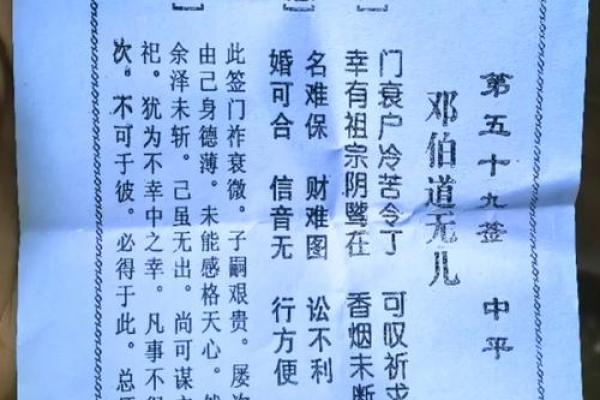 第五十九签 中平
邓伯道无儿
门衰户冷苦令丁 可叹祈求
幸有祖宗阴骘在 香烟未断
名难保 财难图 讼不利
婚可合 信音无 行方便
此签门祚衰微。子嗣艰贵。屡
由己身德薄。未能感格天心。
余泽未斩。己虽无出。尚可谋
祀。犹为不幸中之幸。凡事不得
次。不可于彼。必得于此。总